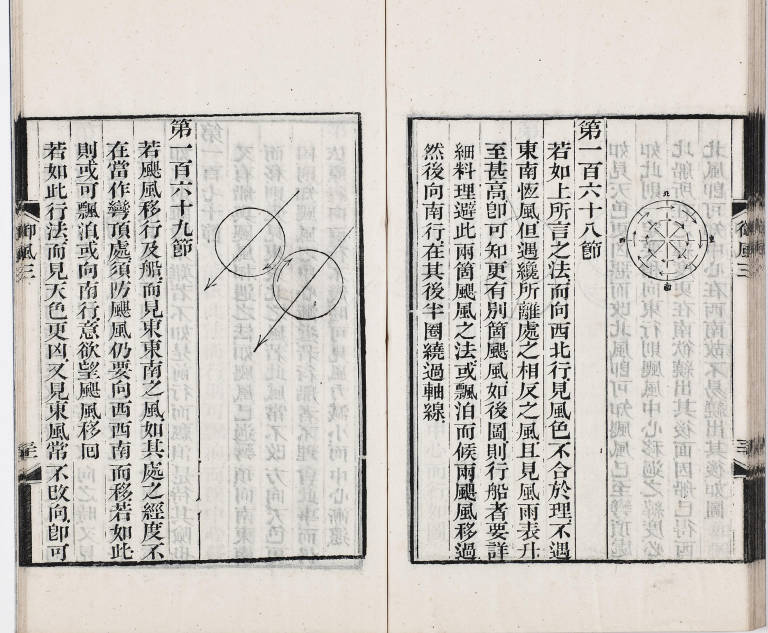 北
東
南
西
第一百六十八節
若如上所言之法而向西北行見風色不合於理不遇
東南恆風但遇纔所離處之相反之風且見風雨表升
至甚高卽可知更有別箇颶風如後圖則行船者要詳
細料理避此兩箇颶風之法或飄泊而候兩颶風移過
然後向南行在其後半圈繞過軸線
第一百六十九節
若颶風移行及船而見東東南之風如其處之經度不
在當作彎頂處須防颶風仍要向西西南而移若如此
則或可飄泊或向南行意欲望颶風移囘
若如此行法而見天色更凶又見東風常不改向卽可
御風三
御風三